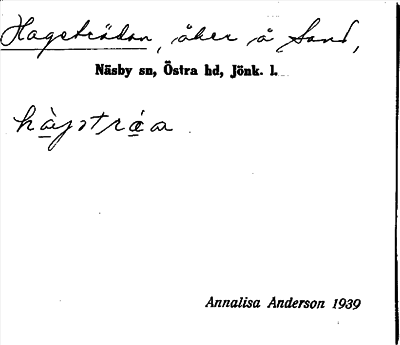 Hagsträdan, åker å Sand,
Näsby sn, Östra hd, Jönk. l.
Annalisa Anderson 1939